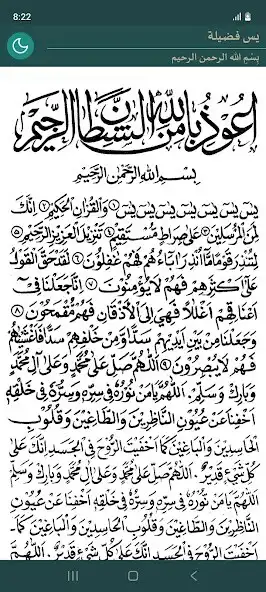 8:22
يس فضيلة
بِسْمِ اللّٰهِ الرحمن الرحيم
اَعُوذُ بِاللّٰهِ مِنَ الشَّيْطَانِ الرَّجِيْمِ
بِسْمِ اللّٰهِ الرَّحْمٰنِ الرَّحِيْمِ
يٰسٓ يٰسٓ يٰسٓ يٰسٓ يٰسٓ يٰسٓ يٰسٓ ۝١ وَالْقُرْاٰنِ الْحَكِيْمِ ۝٢ اِنَّكَ
لَمِنَ الْمُرْسَلِيْنَ ۝٣ عَلٰى صِرَاطٍ مُسْتَقِيْمٍ ۝٤ تَنْزِيْلَ الْعَزِيْزِ الرَّحِيْمِ ۝٥
لِتُنْذِرَ قَوْمًا مَّا اُنْذِرَ اٰبَاۤؤُهُمْ فَهُمْ غٰفِلُوْنَ ۝٦ لَقَدْ حَقَّ الْقَوْلُ
عَلٰٓى اَكْثَرِهِمْ فَهُمْ لَا يُؤْمِنُوْنَ ۝٧ اِنَّا جَعَلْنَا فِيْٓ
اَعْنَاقِهِمْ اَغْلٰلًا فَهِيَ اِلَى الْاَذْقَانِ فَهُمْ مُقْمَحُوْنَ ۝٨
وَجَعَلْنَا مِنْ بَيْنِ اَيْدِيْهِمْ سَدًّا وَّمِنْ خَلْفِهِمْ سَدًّا فَاَغْشَيْنٰهُمْ
فَهُمْ لَا يُبْصِرُوْنَ ۝٩ اَللّٰهُمَّ صَلِّ عَلٰى مُحَمَّدٍ وَعَلٰى اٰلِ مُحَمَّدٍ
وَبَارِكْ وَسَلِّمْ. اَللّٰهُمَّ يَا مَنْ نُوْرُهُ فِيْ سِرِّهِ وَسِرُّهُ فِيْ خَلْقِهِ
اَخْفِنَا عَنْ عُيُوْنِ النَّاظِرِيْنَ وَالطَّاغِيْنَ وَقُلُوْبِ
الْحَاسِدِيْنَ وَالْبَاغِيْنَ كَمَا اَخْفَيْتَ الرُّوْحَ فِي الْجَسَدِ اِنَّكَ عَلٰى
كُلِّ شَيْءٍ قَدِيْرٌ. اَللّٰهُمَّ صَلِّ عَلٰى مُحَمَّدٍ وَعَلٰى اٰلِ مُحَمَّدٍ وَبَارِكْ وَسَلِّمْ
اَللّٰهُمَّ يَا مَنْ نُوْرُهُ فِيْ سِرِّهِ وَسِرُّهُ فِيْ خَلْقِهِ اَخْفِنَا عَنْ عُيُوْنِ
النَّاظِرِيْنَ وَالطَّاغِيْنَ وَقُلُوْبِ الْحَاسِدِيْنَ وَالْبَاغِيْنَ كَمَا
اَخْفَيْتَ الرُّوْحَ فِي الْجَسَدِ اِنَّكَ عَلٰى كُلِّ شَيْءٍ قَدِيْرٌ. اَللّٰهُمَّ